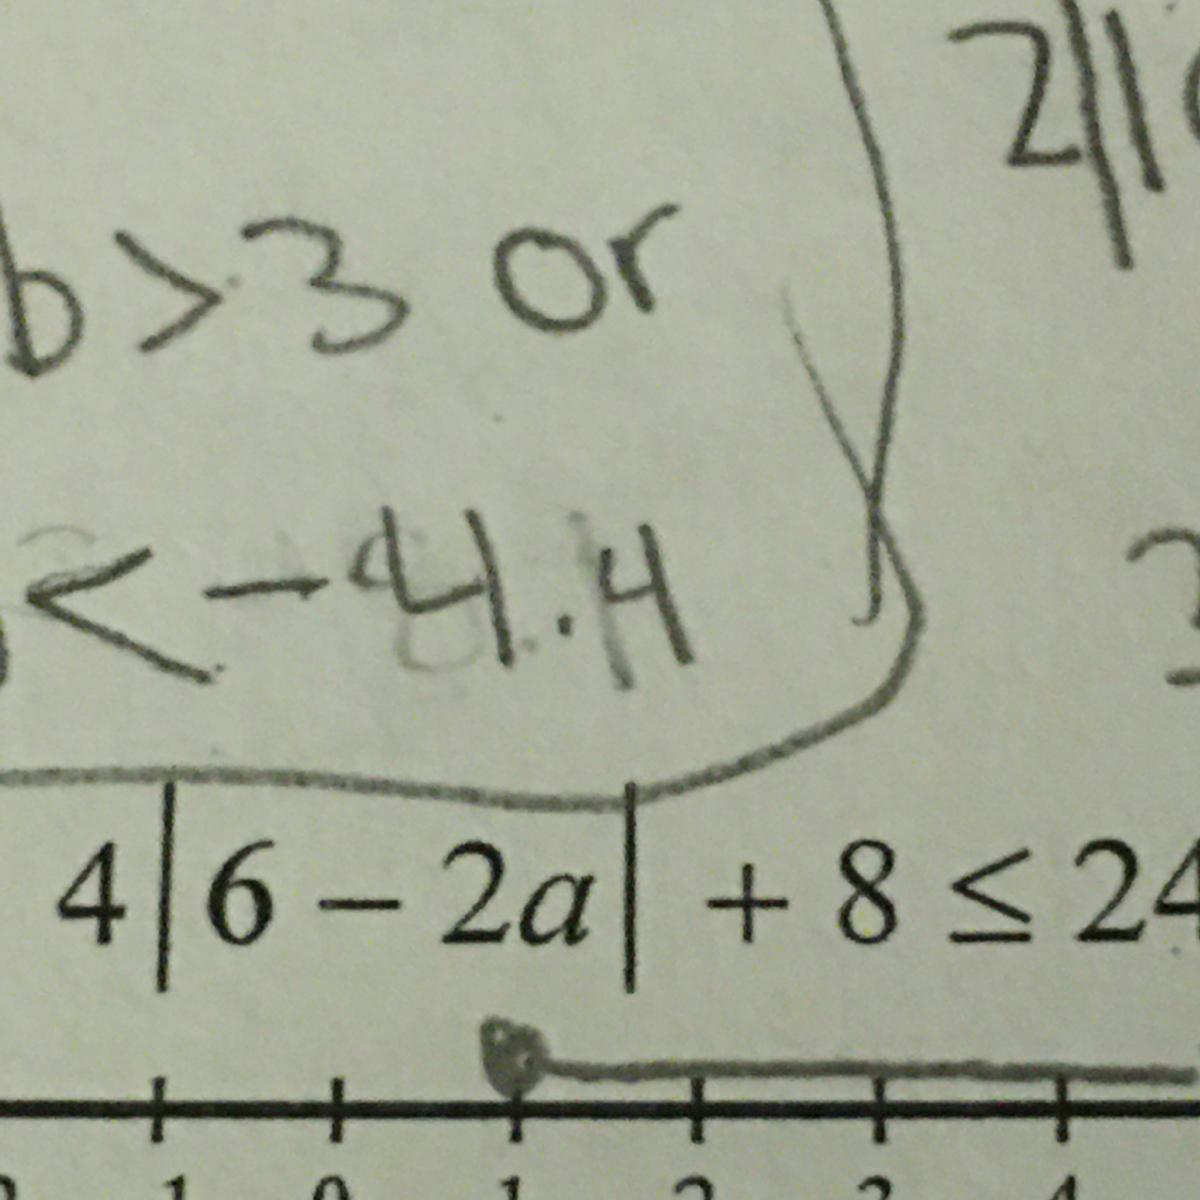 2||
b>3 or
< -4.4
4|6 − 2a| + 8 ≤ 24
0 1 2 3 4